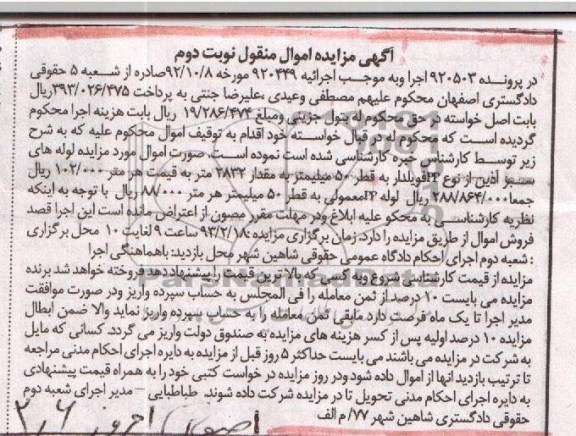 آگهی مزایده اموال منقول نوبت دوم
در پرونده ۹۲۰۵۰۳ اجرا وبه موجب اجرائیه ۹۲۰۴۴۹ مورخه ۹۲/۱۰/۸صادره از شعبه ۵ حقوقی
دادگستری اصفهان محکوم علیهم مصطفی وعیدی ،علیرضا جنتی به پرداخت ۳۹۲/۰۲۶/۴۷۵ریال
بابت اصل خواسته در حق محکوم له بتول جزینی ومبلغ ۱۹/۲۸۶/۴۷۴ ریال بابت هزینه اجرا محکوم
گردیده است که محکوم له در قبال خواسته خود اقدام به توقیف اموال محکوم علیه که به شرح
زیر توسط کارشناس خبره کارشناسی شده است نموده است. صورت اموال مورد مزایده لوله های
سبز آذین از نوع PPفویلدار به قطر ۵۰ میلیمتر به مقدار ۲۸۳۲ متر به قیمت هر متر ۱۰۲/۰۰۰ ریال
جمعا ۲۸۸/۸۶۴/۰۰۰ ریال لوله PPمعمولی به قطر ۵۰ میلیمتر هر متر ۸۸/۰۰۰ ریال با توجه به اینکه
نظریه کارشناسی به محکوم علیه ابلاغ ودر مهلت مقرر مصون از اعتراض مانده است این اجرا قصد
فروش اموال از طریق مزایده را دارد. زمان برگزاری مزایده :۹۳/۲/۱۸ ساعت ۹ لغایت ۱۰ محل برگزاری
: شعبه دوم اجرای احکام دادگاه عمومی حقوقی شاهین شهر محل بازدید: باهماهنگی اجرا
مزایده از قیمت کارشناسی شروع وبه کسی که بالا ترین قیمت را پیشنهاد دهد فروخته خواهد شد برنده
مزایده می بایست ۱۰ درصد از ثمن معامله را فی المجلس به حساب سپرده واریز ودر صورت موافقت
مدیر اجرا تا یک ماه فرصت دارد مابقی ثمن معامله را به حساب سپرده واریز نماید والا ضمن ابطال
مزایده ۱۰ درصد اولیه پس از کسر هزینه های مزایده به صندوق دولت واریز می گردد. کسانی که مایل
به شرکت در مزایده می باشند می بایست حداکثر ۵ روز قبل از مزایده به دایره اجرای احکام مدنی مراجعه
تا ترتیب بازدید آنها از اموال داده شود ودر روز مزایده در خواست کتبی خود را به همراه قیمت پیشنهادی
به دایره اجرای احکام مدنی تحویل تا در مزایده شرکت داده شوند. طباطبایی – مدیر اجرای شعبه دوم
حقوقی دادگستری شاهین شهر ۷۷/ م الف